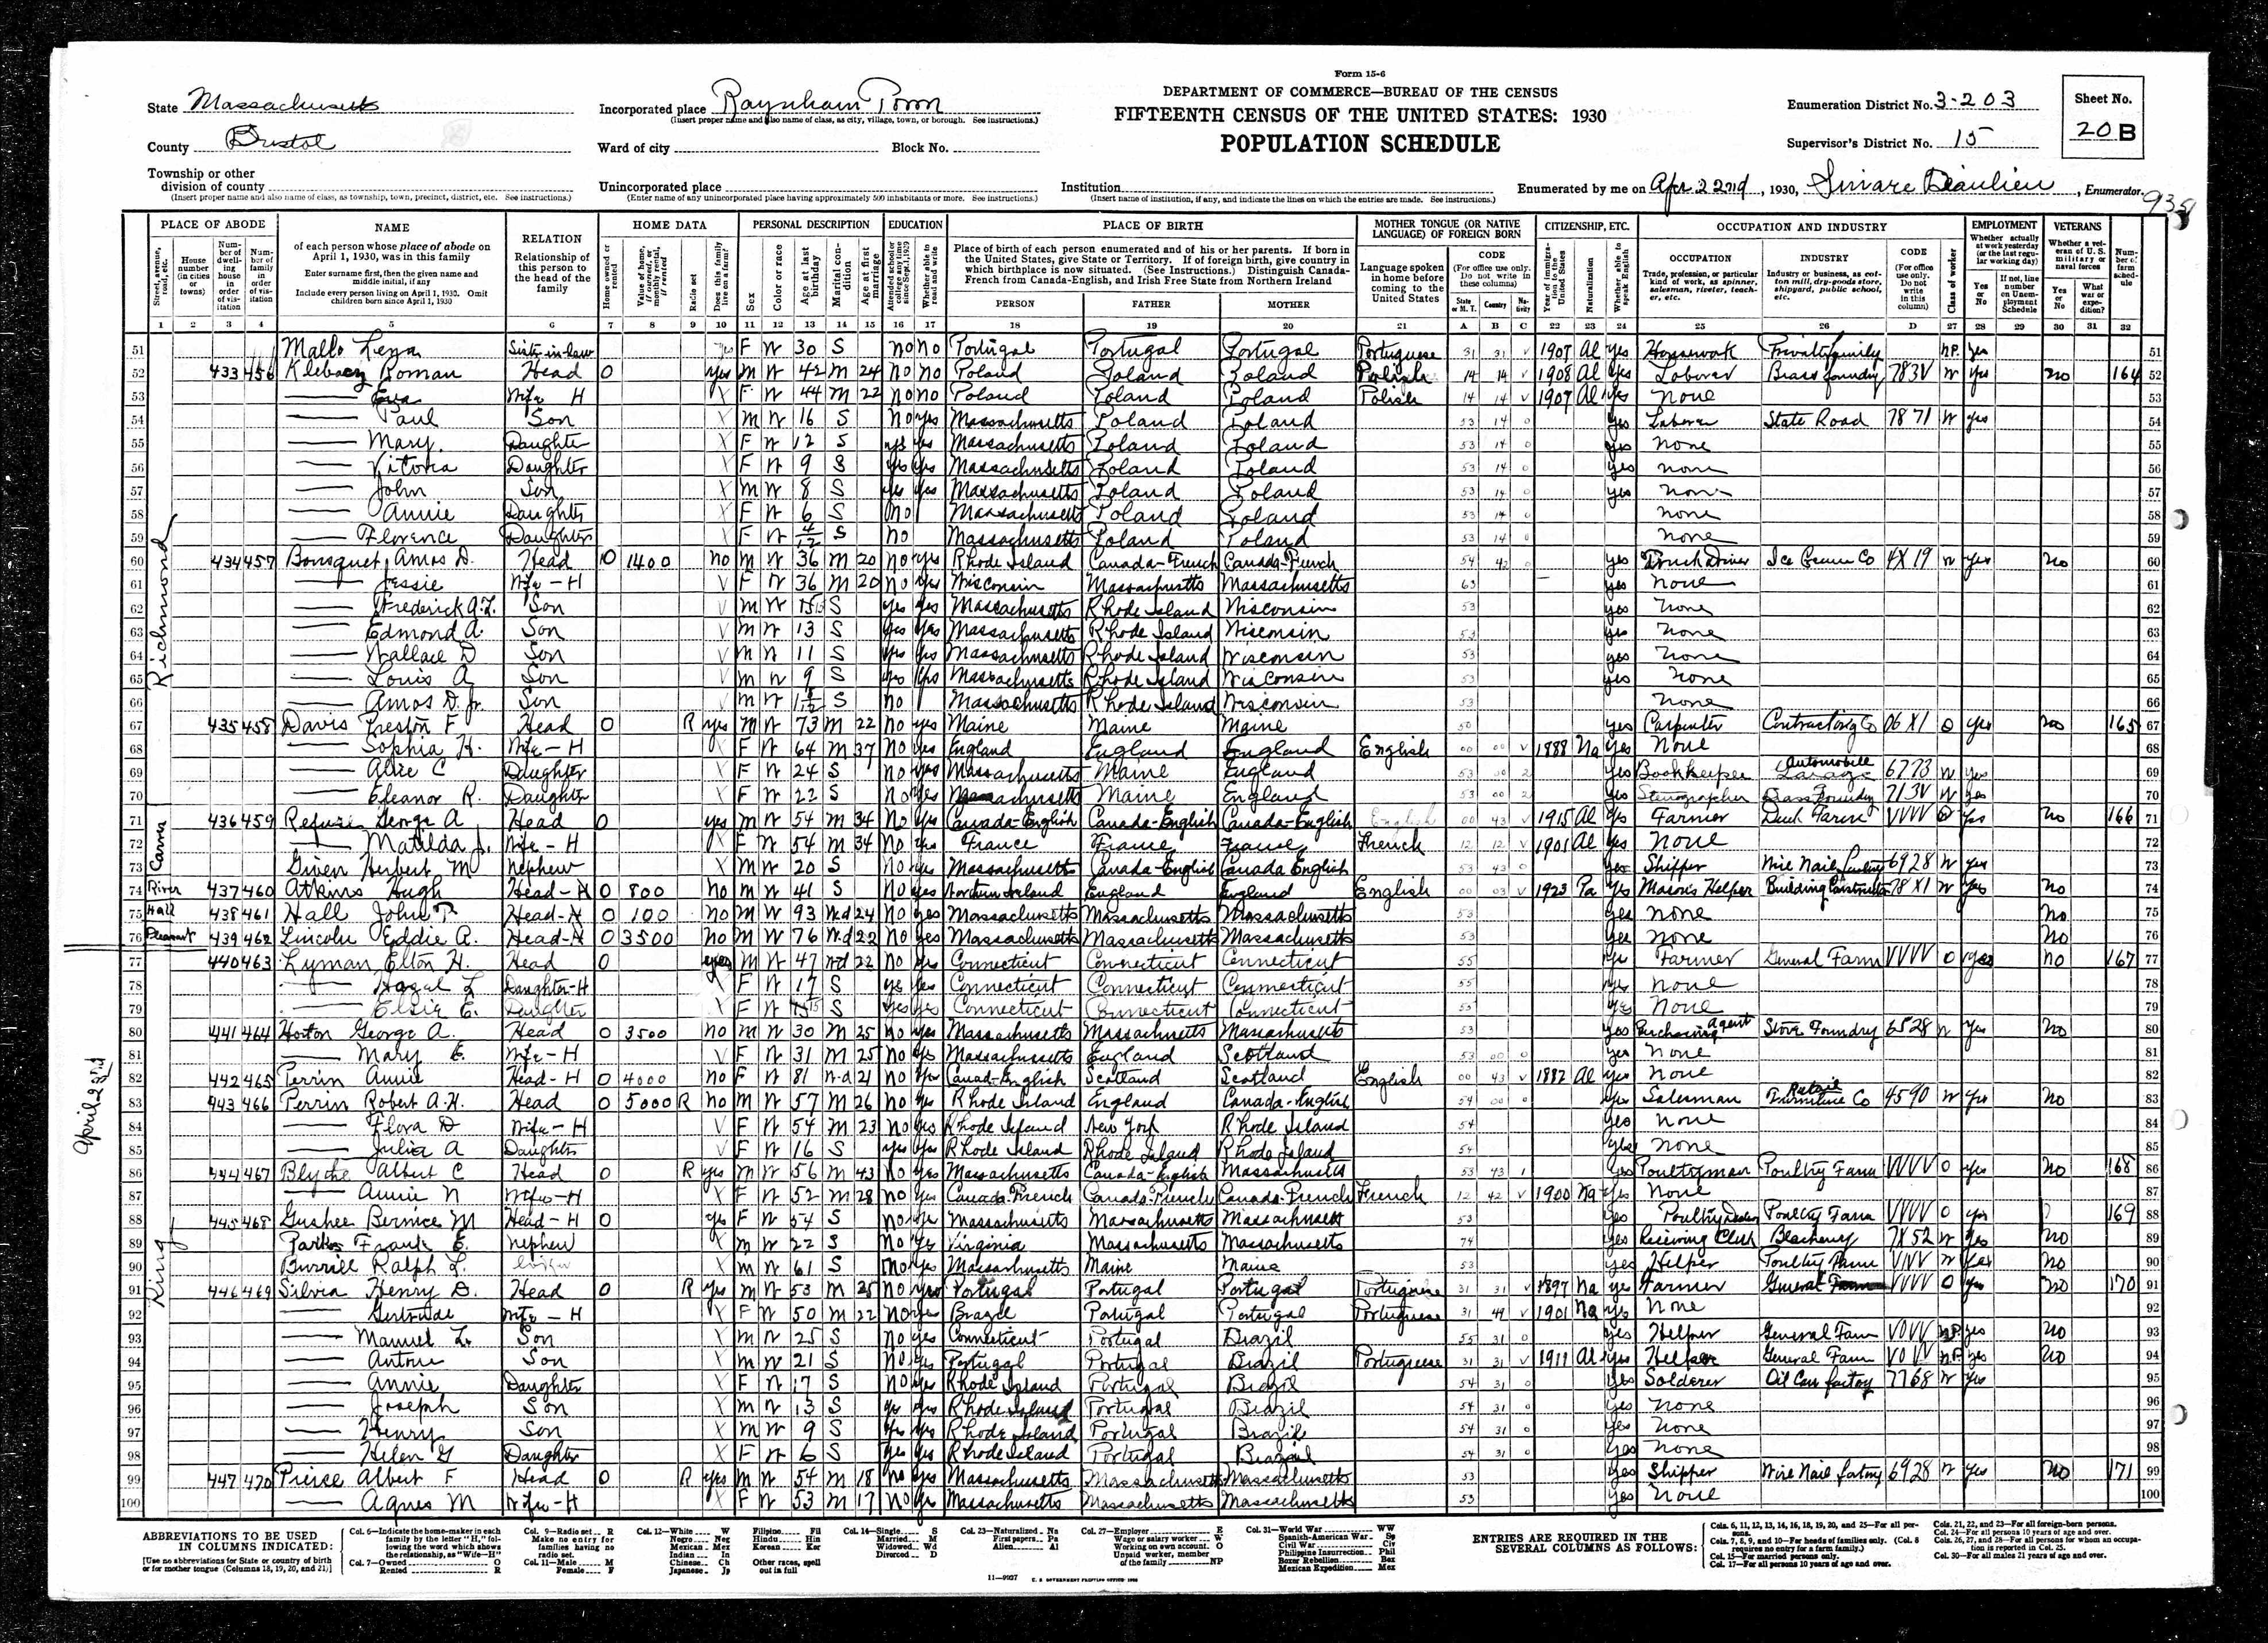 Form 15-6
DEPARTMENT OF COMMERCE—BUREAU OF THE CENSUS
FIFTEENTH CENSUS OF THE UNITED STATES: 1930
POPULATION SCHEDULE
State Massachusetts
County Bristol
Township or other division of county
(Insert proper name and also name of class, as township, town, precinct, district, etc. See instructions.)
Incorporated place Raynham Town
(Insert proper name and also name of class, as city, village, town, or borough. See instructions.)
Ward of city
Block No.
Unincorporated place
(Enter name of any unincorporated place having approximately 500 inhabitants or more. See instructions.)
Institution
(Insert name of institution, if any, and indicate the lines on which the entries are made. See instructions.)
Enumeration District No. 3-203
Supervisor's District No. 15
Sheet No. 20 B
Enumerated by me on Apr 22nd, 1930, Beaulieu, Enumerator.
PLACE OF ABODE | NAME | RELATION | HOME DATA | PERSONAL DESCRIPTION | EDUCATION | PLACE OF BIRTH | MOTHER TONGUE (OR NATIVE LANGUAGE) OF FOREIGN BORN | CITIZENSHIP, ETC. | OCCUPATION AND INDUSTRY | EMPLOYMENT | VETERANS
51 Lena F W 30 S no no Portugal Portugal Portugal Portuguese 31 31 V 1907 Al yes Housework Private family NP yes 51
52 433 456 Roman Head O yes M W 42 M 24 no no Poland Poland Poland Polish 14 14 V 1908 Al yes Laborer Brass foundry 783V W yes no 164 52
53 Eva Wife H X F W 44 M 22 no no Poland Poland Poland Polish 14 14 V 1907 Al yes none 53
54 Paul Son X M W 16 S no yes Massachusetts Poland Poland 53 14 0 yes Laborer State Road 7871 W yes 54
55 Mary Daughter X F W 12 S yes yes Massachusetts Poland Poland 53 14 0 yes none 55
56 Victoria Daughter X F W 9 S yes yes Massachusetts Poland Poland 53 14 0 yes none 56
57 John Son X M W 8 S yes yes Massachusetts Poland Poland 53 14 0 yes none 57
58 Annie Daughter X F W 6 S no Massachusetts Poland Poland 53 14 0 none 58
59 Florence Daughter X F W 4/12 S no Massachusetts Poland Poland 53 14 0 none 59
Richmond
60 434 457 Bousquet, Amos D. Head O 1400 no M W 36 M 20 no yes Rhode Island Canada-French Canada-French 54 42 0 yes Truck Driver Ice Cream Co 4X19 W yes no 60
61 Jessie Wife-H V F W 36 M 20 no yes Wisconsin Massachusetts Massachusetts 63 yes none 61
62 Frederick Son V M W 15 S yes yes Massachusetts Rhode Island Wisconsin 53 yes none 62
63 Edmond A. Son V M W 13 S yes yes Massachusetts Rhode Island Wisconsin 53 yes none 63
64 Wallace D Son V M W 11 S yes yes Massachusetts Rhode Island Wisconsin 53 yes none 64
65 Louis A Son V M W 9 S yes yes Massachusetts Rhode Island Wisconsin 53 yes none 65
66 Amos D. Jr. Son V M W S no Massachusetts Rhode Island Wisconsin 53 none 66
67 435 458 Davis Preston F Head O R yes M W 73 M 22 no yes Maine Maine Maine 50 yes Carpenter Contracting Co 06X1 O yes no 165 67
68 Sophia H. Wife-H X F W 64 M 37 no yes England England England English 00 00 V 1888 Na yes none 68
69 Alice C Daughter X F W 24 S no yes Massachusetts Maine England 53 00 2 yes Bookkeeper Automobile Garage 6773 W yes 69
70 Eleanor R. Daughter X F W 22 S no yes Massachusetts Maine England 53 00 2 yes Stenographer Brass Foundry 713V W yes 70
Carver
71 436 459 George A Head O yes M W 54 M 34 no yes Canada-English Canada-English Canada-English English 00 43 V 1915 Al yes Farmer Duck Farm VVVV O yes no 166 71
72 Matilda J. Wife-H X F W 54 M 34 no yes France France France French 12 12 V 1901 Al yes none 72
73 Given Herbert M nephew X M W 20 S no yes Massachusetts Canada-English Canada English 53 43 0 yes Shipper Wire Nail factory 6928 W yes 73
74 River 437 460 Atkins Hugh Head-H O 800 no M W 41 S no yes Northern Ireland England England English 00 03 V 1923 Pa yes Masons Helper Building Construction 78X1 W yes no 74
75 Hall 438 461 Hall John T. Head-H O 100 no M W 93 Wd 24 no yes Massachusetts Massachusetts Massachusetts 53 yes none no 75
76 Pleasant 439 462 Lincoln Eddie A. Head-H O 3500 no M W 76 Wd 22 no yes Massachusetts Massachusetts Massachusetts 53 yes none no 76
77 440 463 Lyman Elton H. Head O yes M W 47 Wd 22 no yes Connecticut Connecticut Connecticut 55 yes Farmer General Farm VVVV O yes no 167 77
78 Hazel L Daughter-H X F W 17 S yes yes Connecticut Connecticut Connecticut 55 yes none 78
79 Elsie E. Daughter X F W 15 S yes yes Connecticut Connecticut Connecticut 55 yes none 79
April 22nd
80 441 464 Horton George A. Head O 3500 no M W 30 M 25 no yes Massachusetts Massachusetts Massachusetts 53 yes Purchasing Agent Stove Foundry 6528 W yes no 80
81 Mary E. Wife-H V F W 31 M 25 no yes Massachusetts England Scotland 53 00 0 yes none 81
82 442 465 Perrin Annie Head-H O 4000 no F W 81 Wd 21 no yes Canada-English Scotland Scotland English 00 43 V 1882 Al yes none 82
83 443 466 Perrin Robert A.H. Head O 5000 R no M W 57 M 26 no yes Rhode Island England Canada-English 54 00 0 yes Salesman Retail Furniture Co 4590 W yes no 83
84 Flora D Wife-H V F W 54 M 23 no yes Rhode Island New York Rhode Island 54 yes none 84
85 Julia A Daughter V F W 16 S yes yes Rhode Island Rhode Island Rhode Island 54 yes none 85
86 444 467 Blythe Albert C Head O R yes M W 56 M 43 no yes Massachusetts Canada-English Massachusetts 53 43 1 yes Poultryman Poultry Farm VVVV O yes no 168 86
87 Annie N Wife-H X F W 52 M 28 no yes Canada-French Canada-French Canada-French French 12 42 V 1900 Na yes none 87
King
88 445 468 Gushee Bernice M Head-H O yes F W 54 S no yes Massachusetts Massachusetts Massachusetts 53 yes Poultry Poultry Farm VVVV O yes 169 88
89 Parks Frank E. nephew X M W 22 S no yes Virginia Massachusetts Massachusetts 74 yes Receiving Clerk Bleachery 7X52 W yes no 89
90 Burrill Ralph L. X M W 61 S no yes Massachusetts Maine Maine 53 yes Helper Poultry Farm VVVV W yes no 90
91 446 469 Silvia Henry D. Head O R yes M W 53 M 25 no yes Portugal Portugal Portugal Portuguese 31 31 V 1897 Na yes Farmer General Farm VVVV O yes no 170 91
92 Gertrude Wife-H X F W 50 M 22 no yes Brazil Portugal Portugal Portuguese 31 49 V 1901 Na yes none 92
93 Manuel L. Son X M W 25 S no yes Connecticut Portugal Brazil 55 31 0 yes Helper General Farm VOVV NP yes no 93
94 Antone Son X M W 21 S no yes Portugal Portugal Brazil Portuguese 31 31 V 1911 Al yes Helper General Farm VOVV NP yes no 94
95 Annie Daughter X F W 17 S no yes Rhode Island Portugal Brazil 54 31 0 yes Solderer Oil Can factory 7768 W yes 95
96 Joseph Son X M W 13 S yes yes Rhode Island Portugal Brazil 54 31 0 yes none 96
97 Henry Son X M W 9 S yes yes Rhode Island Portugal Brazil 54 31 0 yes none 97
98 Helen G Daughter X F W 6 S yes yes Rhode Island Portugal Brazil 54 31 0 yes none 98
99 447 470 Pierce Albert F Head O R yes M W 54 M 18 no yes Massachusetts Massachusetts Massachusetts 53 yes Shipper Wire Nail factory 6928 W yes no 171 99
100 Agnes M Wife-H X F W 53 M 17 no yes Massachusetts Massachusetts Massachusetts 53 yes none 100
ABBREVIATIONS TO BE USED IN COLUMNS INDICATED:
[Use no abbreviations for State or country of birth or for mother tongue (Columns 18, 19, 20, and 21)]
ENTRIES ARE REQUIRED IN THE SEVERAL COLUMNS AS FOLLOWS:
11—9937 U. S. GOVERNMENT PRINTING OFFICE